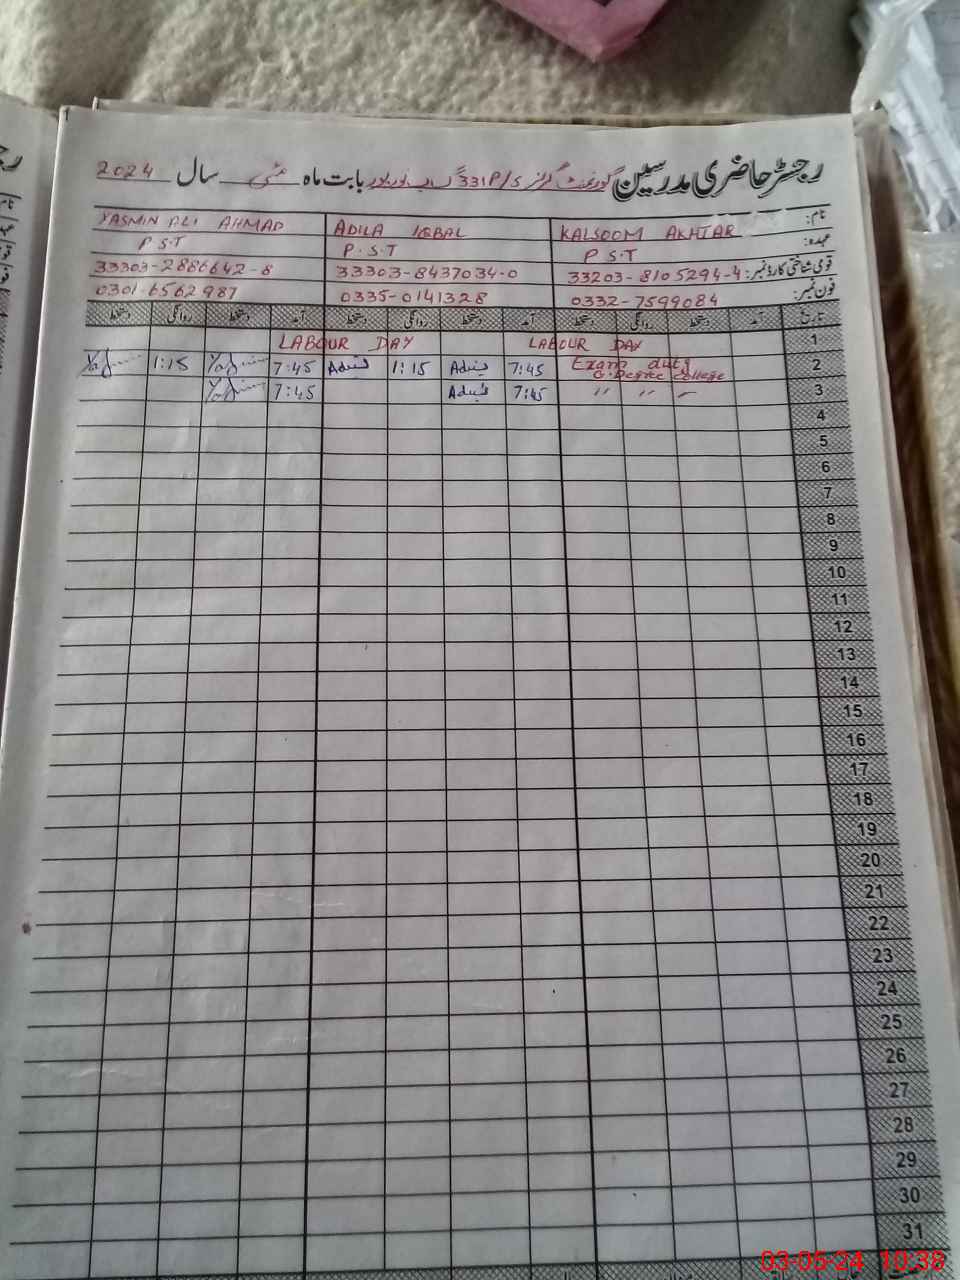 رجسٹر حاضری مدرسین گورنمنٹ گرلز P/S 331 بابت ماہ مئی سال 2024
نام: KALSOOM AKHTAR ADILA IQBAL YASMIN ALI AHMAD
عہدہ: P S T P.S.T P S.T
قومی شناختی کارڈ نمبر: 33203-8105294-4 33303-8437034-0 33303-2886642-8
فون نمبر: 0332-7599084 0335-0141328 0301-6562987
تاریخ آمد دستخط روانگی دستخط آمد دستخط روانگی دستخط آمد دستخط روانگی دستخط
1 LABOUR DAY LABOUR DAY
2 Exam duty G. Degree College 7:45 1:15 7:45 1:15
3 〃 〃 〃 7:45 7:45
4
5
6
7
8
9
10
11
12
13
14
15
16
17
18
19
20
21
22
23
24
25
26
27
28
29
30
31
03-05-24 10:38